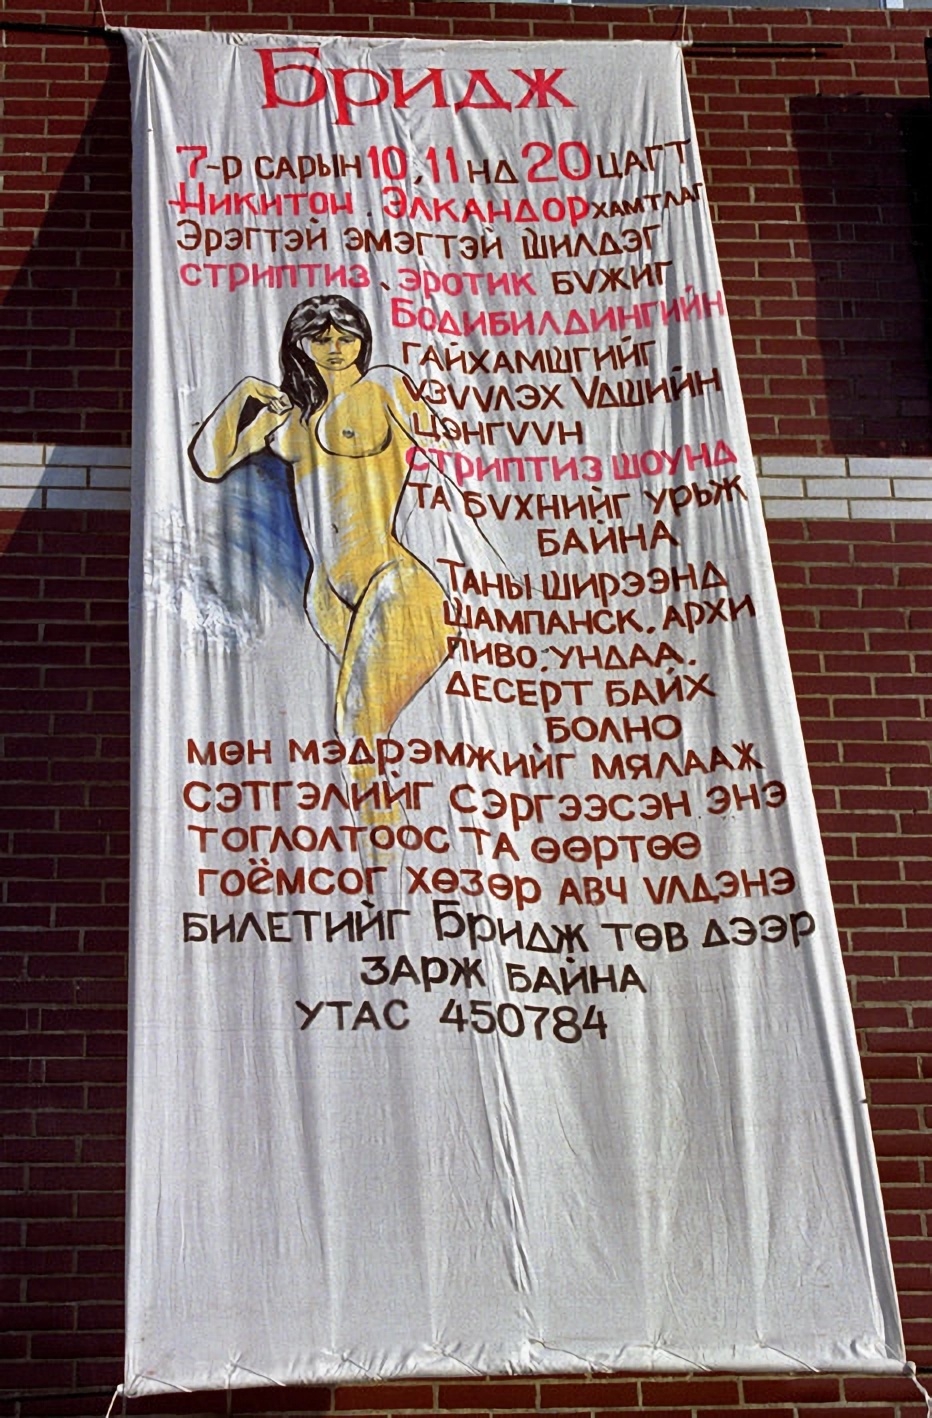 Бридж
7-р сарын 10, 11 нд 20 цагт
Никитон, Элкандор хамтлаг
Эрэгтэй эмэгтэй шилдэг
стриптиз, эротик бүжиг
Бодибилдингийн
гайхамшгийг
үзүүлэх Үдшийн
цэнгүүн
стриптиз шоунд
та бүхнийг урьж
байна
Таны ширээнд
шампанск. архи
пиво, ундаа.
десерт байх
болно
мөн мэдрэмжийг мялааж
сэтгэлийг сэргээсэн энэ
тоглолтоос та өөртөө
гоёмсог хөзөр авч үлдэнэ
билетийг Бридж төв дээр
зарж байна
утас 450784